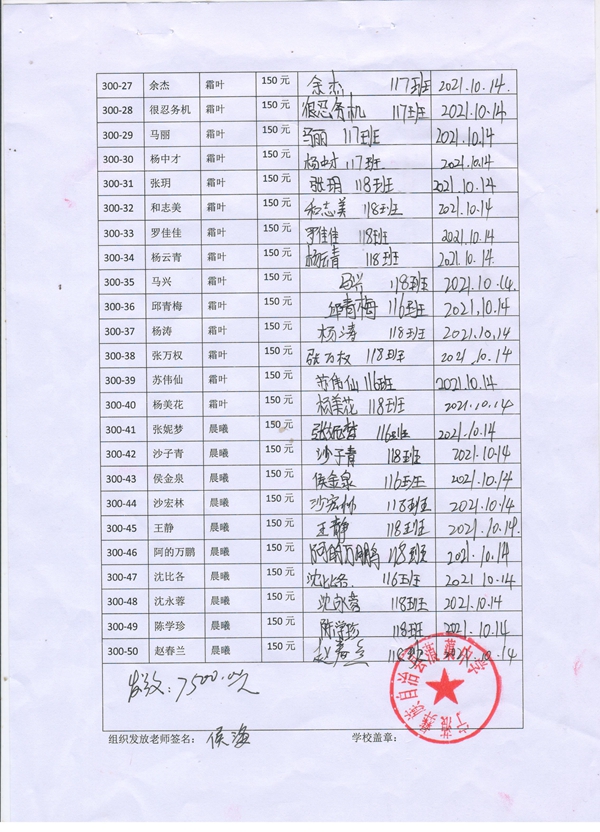 300-27 余杰 霜叶 150 元 余杰 117班 2021.10.14.
300-28 很忍务机 霜叶 150 元 很忍务机 117班 2021.10.14
300-29 马丽 霜叶 150 元 马丽 117班 2021.10.14
300-30 杨中才 霜叶 150 元 杨中才 117班 2021.10.14
300-31 张玥 霜叶 150 元 张玥 118班 2021.10.14
300-32 和志美 霜叶 150 元 和志美 118班 2021.10.14
300-33 罗佳佳 霜叶 150 元 罗佳佳 118班 2021.10.14
300-34 杨云青 霜叶 150 元 杨云青 118班 2021.10.14
300-35 马兴 霜叶 150 元 马兴 118班 2021.10.14.
300-36 邱青梅 霜叶 150 元 邱青梅 116班 2021.10.14
300-37 杨涛 霜叶 150 元 杨涛 118班 2021.10.14
300-38 张万权 霜叶 150 元 张万权 118班 2021.10.14
300-39 苏伟仙 霜叶 150 元 苏伟仙 116班 2021.10.14
300-40 杨美花 霜叶 150 元 杨美花 118班 2021.10.14
300-41 张妮梦 晨曦 150 元 张妮梦 116班 2021.10.14
300-42 沙子青 晨曦 150 元 沙子青 118班 2021.10.14
300-43 侯金泉 晨曦 150 元 侯金泉 116班 2021.10.14
300-44 沙宏林 晨曦 150 元 沙宏林 118班 2021.10.14
300-45 王静 晨曦 150 元 王静 118班 2021.10.14.
300-46 阿的万鹏 晨曦 150 元 阿的万鹏 118班 2021.10.14
300-47 沈比各 晨曦 150 元 沈比各. 116班 2021 10.14
300-48 沈永蓉 晨曦 150 元 沈永蓉 118班 2021.10.14
300-49 陈学珍 晨曦 150 元 陈学珍 118班 2021.10.14
300-50 赵春兰 晨曦 150 元 赵春兰 118班 2021.10.14
发放:7500.00元
组织发放老师签名: 侯海
学校盖章: